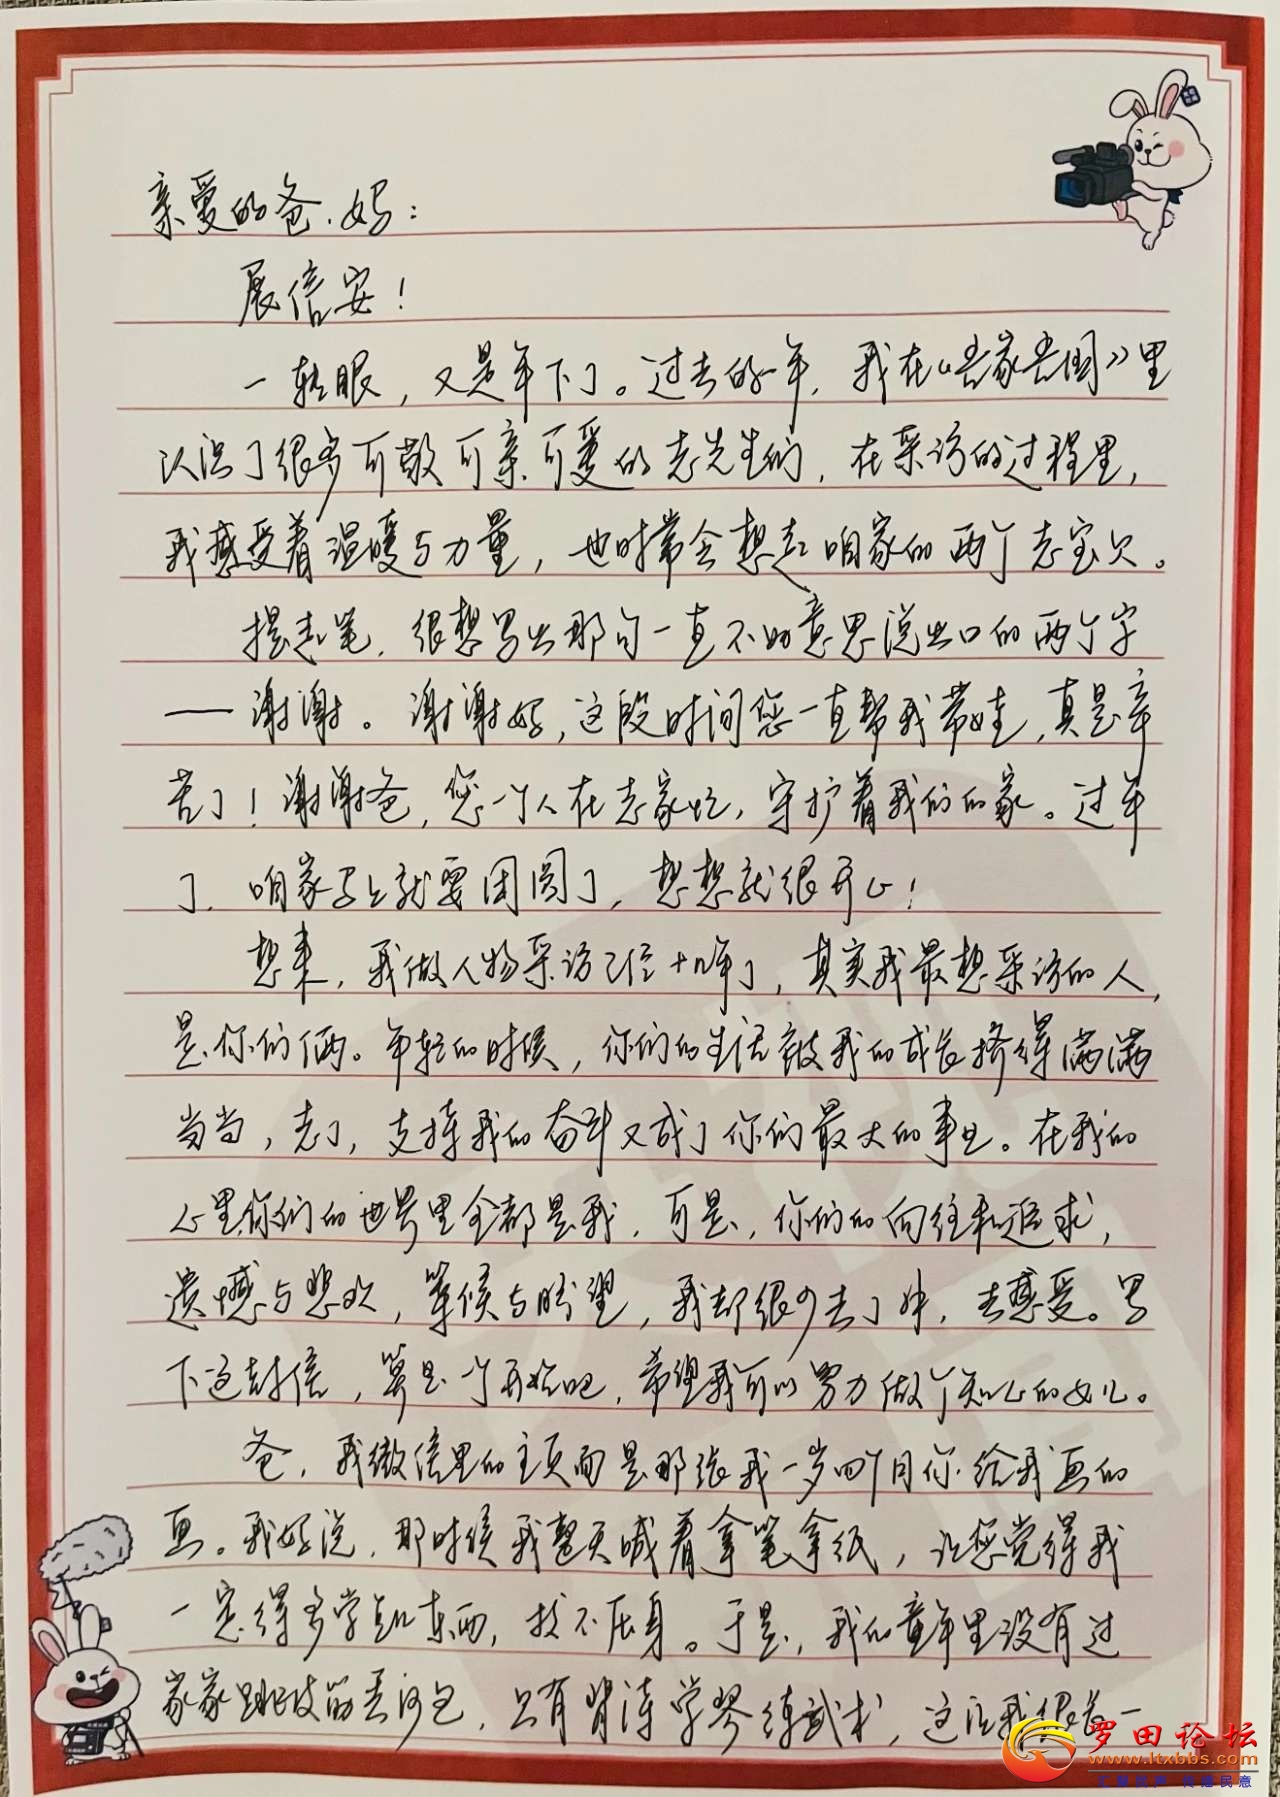 亲爱的爸、妈：
展信安！
一转眼，又是年下了。过去的一年，我在《吾家吾国》里
认识了很多可敬可亲可爱的老先生们，在采访的过程里，
我感受着温暖与力量，也时常会想起咱家的两个老宝贝。
提起笔，很想写出那句一直不好意思说出口的两个字
——谢谢。谢谢妈，这段时间您一直帮我带娃，真是辛
苦了！谢谢爸，您一个人在老家忙，守护着我们的家。过年
了，咱家马上就要团圆了，想想就很开心！
想来，我做人物采访已经十几年了，其实我最想采访的人，
是你们俩。年轻的时候，你们的生活被我的成长挤得满满
当当，老了，支持我的奋斗又成了你们最大的事业。在我的
心里你们的世界里全都是我，可是，你们的向往和追求，
遗憾与悲欢，等候与盼望，我却很少去了解，去感受。写
下这封信，算是一个开始吧，希望我可以努力做个知心的女儿。
爸，我微信里的主页面是那张我一岁四个月你给我画的
画。我妈说，那时候我整天喊着拿笔拿纸，让您觉得我
一定得多学点儿东西，技不压身。于是，我的童年里没有过
家家跳皮筋丢沙包，只有背诗学琴练武术，这让我很长一
罗田论坛
www.ltxbbs.com